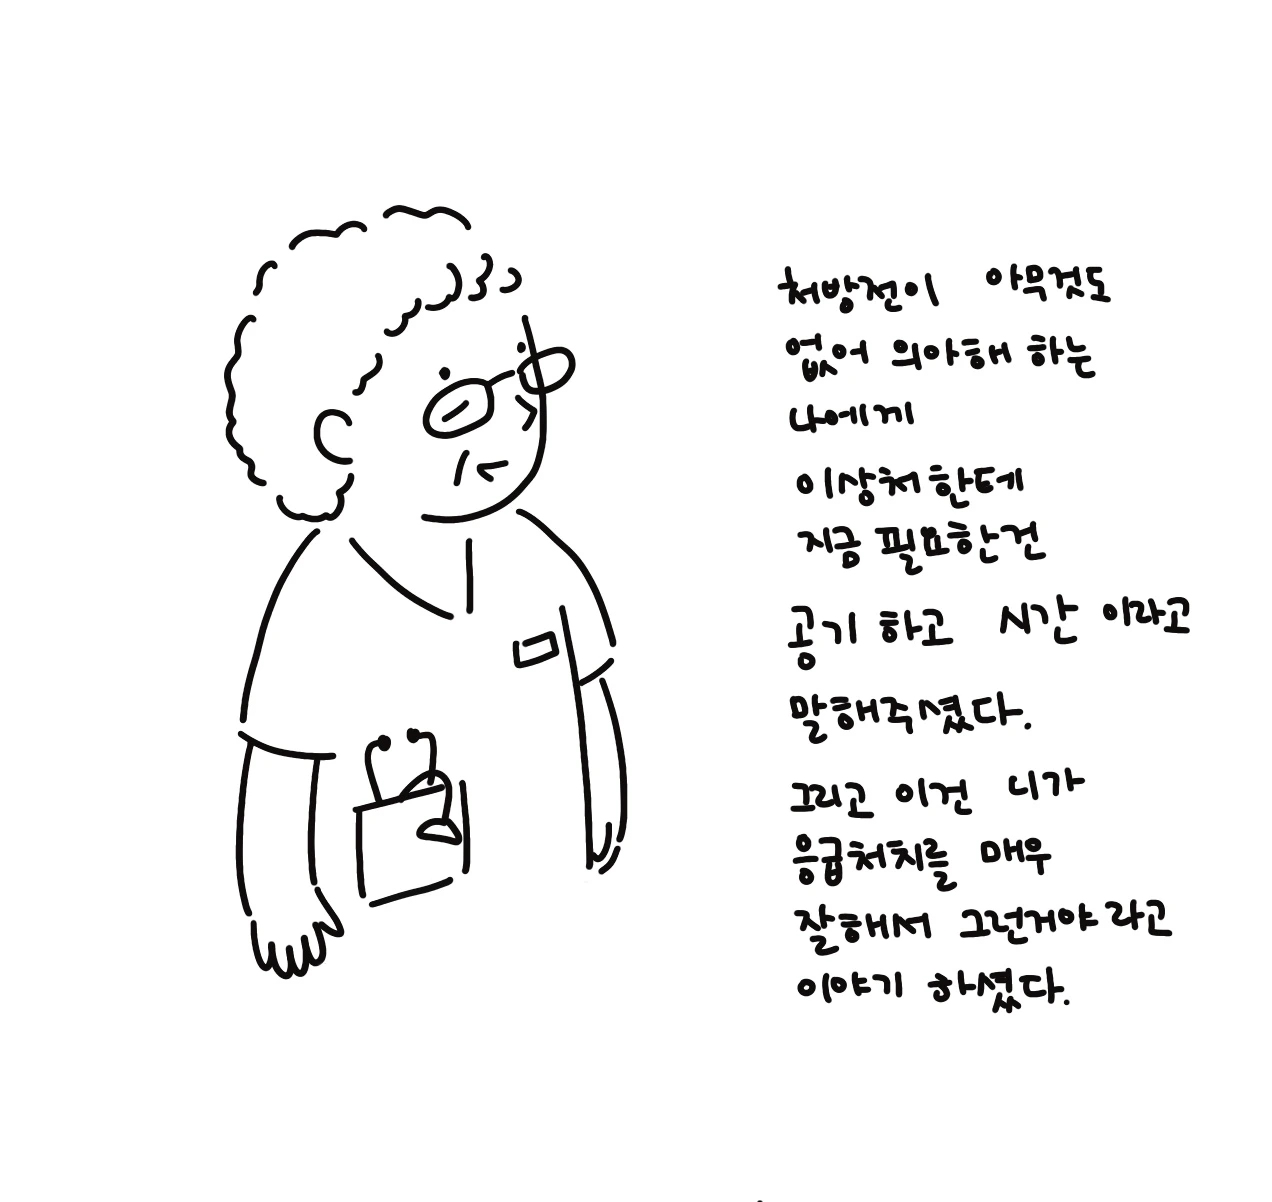 처방전이 아무것도
없어 의아해 하는
나에게
이상처한테
지금 필요한건
공기 하고 시간 이라고
말해주셨다.
그리고 이건 니가
응급처치를 매우
잘해서 그런거야 라고
이야기 하셨다.